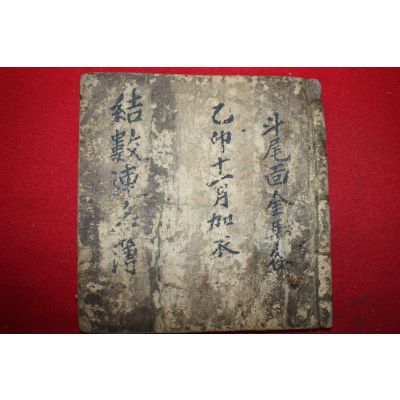 斗尾面金馬谷
乙卯十一月加衣
結數連名簿